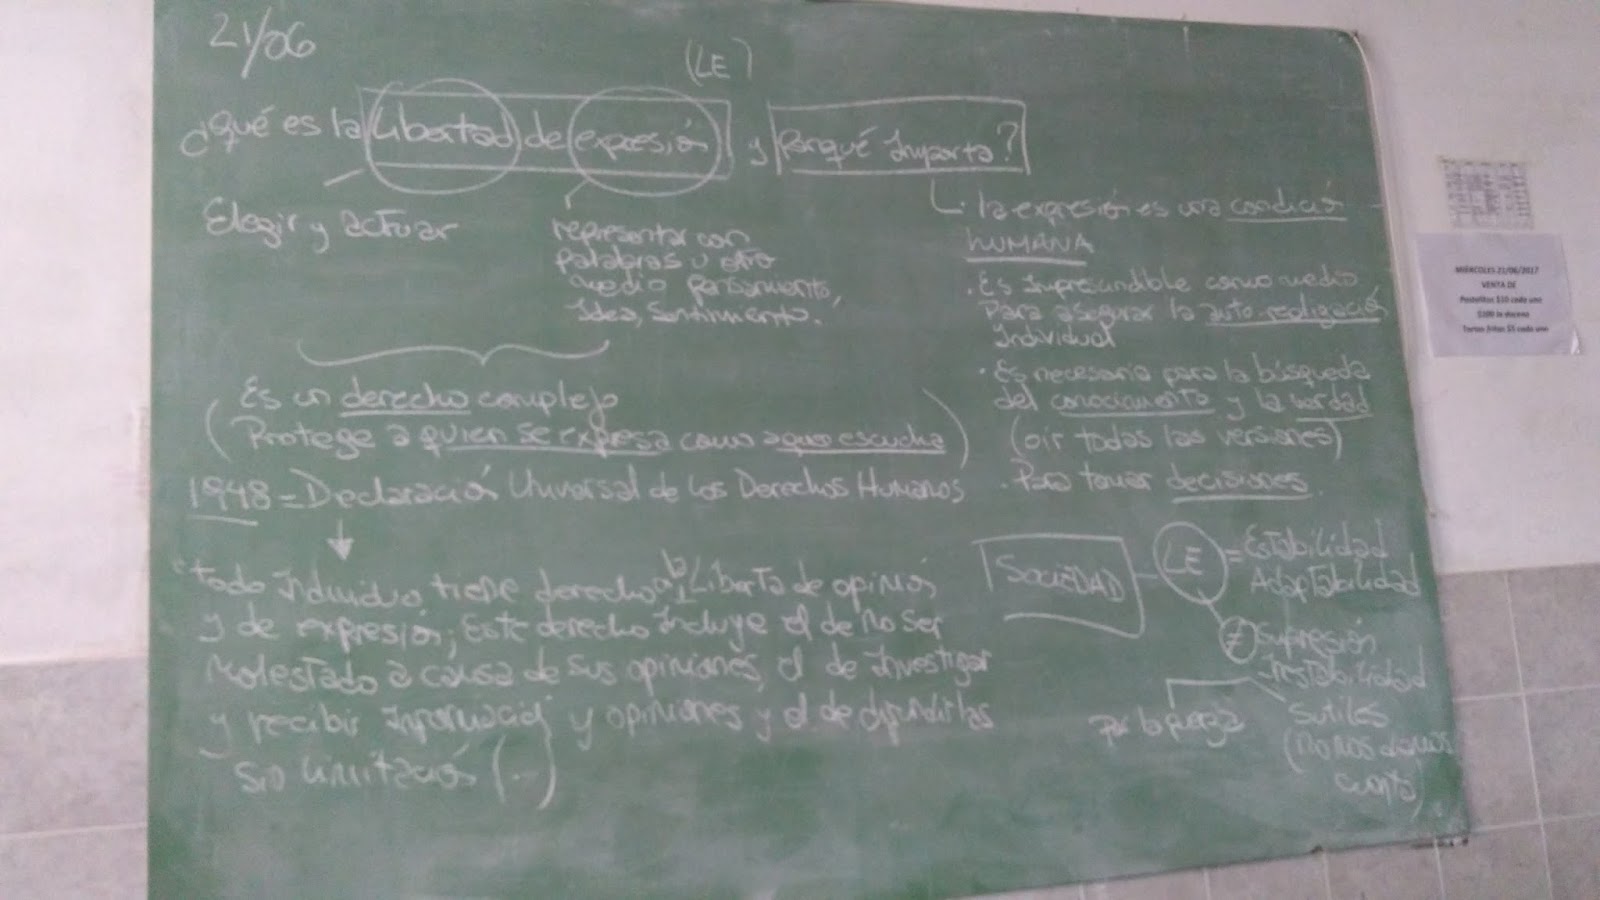 21/06
(LE)
¿Qué es la Libertad de expresión y porqué Importa?
Elegir y actuar
representar con
palabras u otro
medio pensamiento,
Idea, Sentimento.
Es un derecho complejo
(Protege a quien se expresa como a quien escucha)
1948 = Declaración Universal de los Derechos Humanos
"todo Individuo tiene derecho a la Liberta de opinión
y de expresión; Este derecho Incluye el de no ser
molestado a causa de sus opiniones, el de Investigar
y recibir Información y opiniones y el de difundirlas
sin limitación (...)
. la expresión es una condición
HUMANA
. Es Impresindible como medio
Para asegurar la auto-realización
Individual
. Es necesario para la búsqueda
del conocimiento y la verdad
(oir todas las versiones)
. Para tomar decisiones.
SOCIEDAD - LE = Estabilidad
Adaptabilidad
≠ Supresión
Inestabilidad
Por la fuerza
Sutiles
(no nos damos
cuenta)
MIÉRCOLES 21/06/2017
VENTA DE
Pastelitos $10 cada uno
$100 la docena
Tortas fritas $5 cada uno